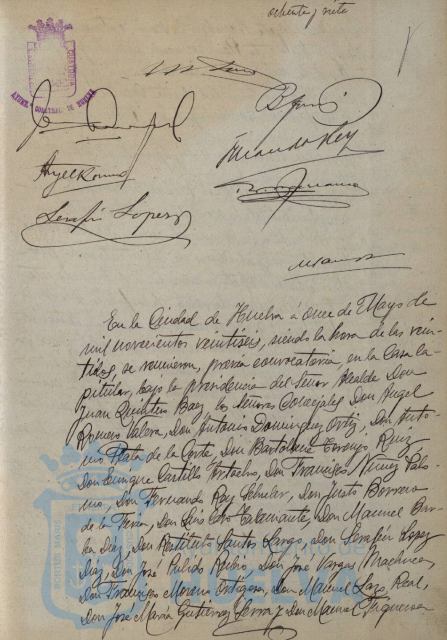 ochenta y siete
AYUNT. CONSTNAL. DE HUELVA
Fernando Rey
Angel Romero
Serafín Lopez
En la Ciudad de Huelva á once de Mayo de
mil novecientos veintiséis, siendo la hora de las vein-
tidos, se reunieron, previa convocatoria, en la Casa Ca-
pitular, bajo la presidencia del Señor Alcalde Don
Juan Quintero Baez los Señores Concejales Don Angel
Romero Valera, Don Antonio Dominguez Ortiz, Don Anto-
nio Plata de la Corte, Don Bartolomé Ruiz
Don Enrique Castillo Don Francisco Nuñez Palo-
mo, Don Fernando Rey Don Justo Borrero
de la Feria, Don Luis Don Manuel Bar-
ba Diaz, Don Restituto Santos Largo, Don Serafín Lopez
Diaz, Don José Pulido Rubio, Don José Vargas Machuca,
Don Francisco Moreno Ortega, Don Manuel Lazo Real,
Don José María Gutierrez Serra y Don Manuel Figueroa